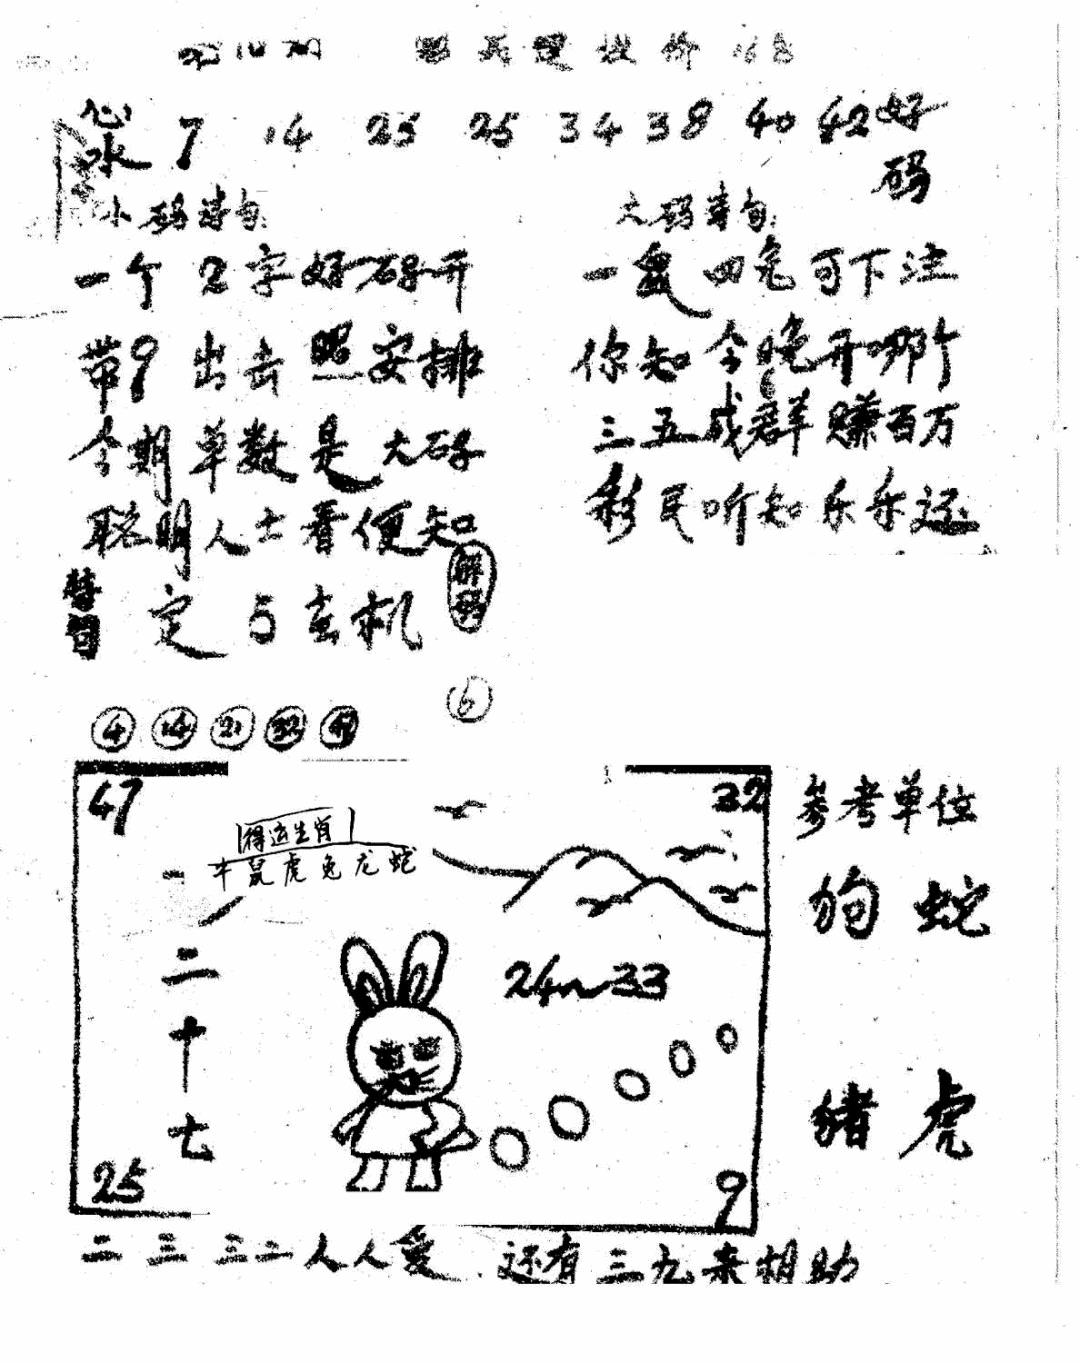 心水 7 14 25 25 34 38 40 42 好码
小码诗句:
一个2字好码开
带9出击照安排
今期单数是大码
聪明人士看便知
大码诗句:
一盘四色可下注
你知今晚开哪个
三五成群赚百万
彩民听知乐乐还
定与玄机
解码
6
4 14 21 32
47
32
得运生肖
牛鼠虎兔龙蛇
一
二十七
24~33
25
9
参考单位
狗 蛇
猪 虎
二三三二人人爱 还有三九来相助